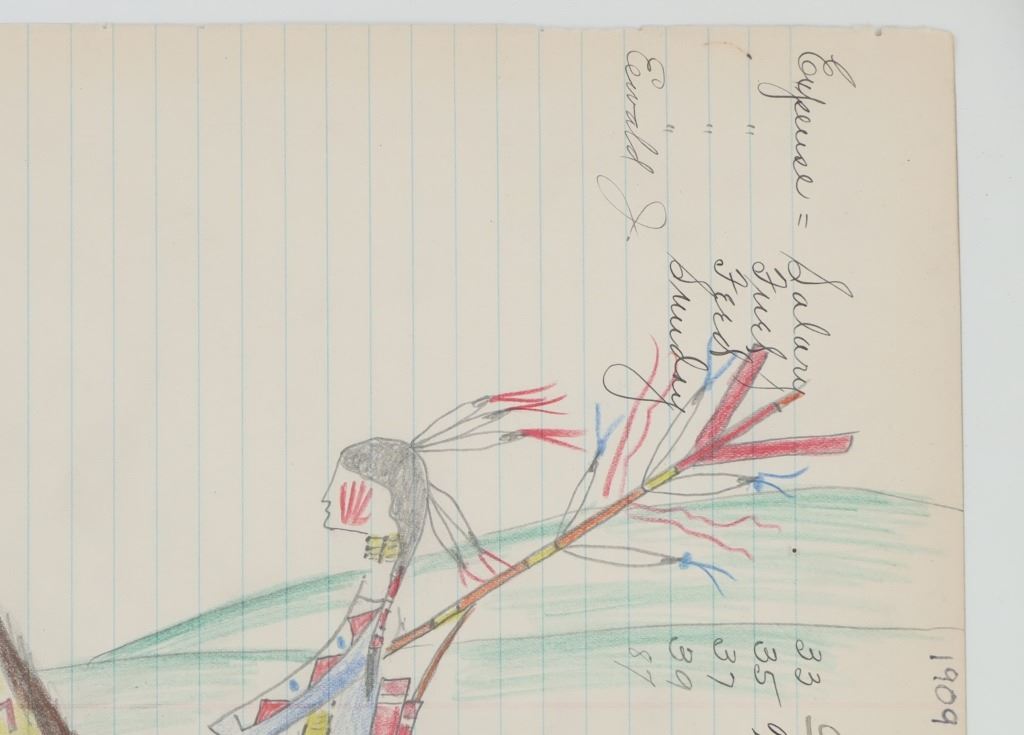 1909
Expense = Salary 33
" Furs 35
" Fers 37
" Sunday 39
Ewald J. 87